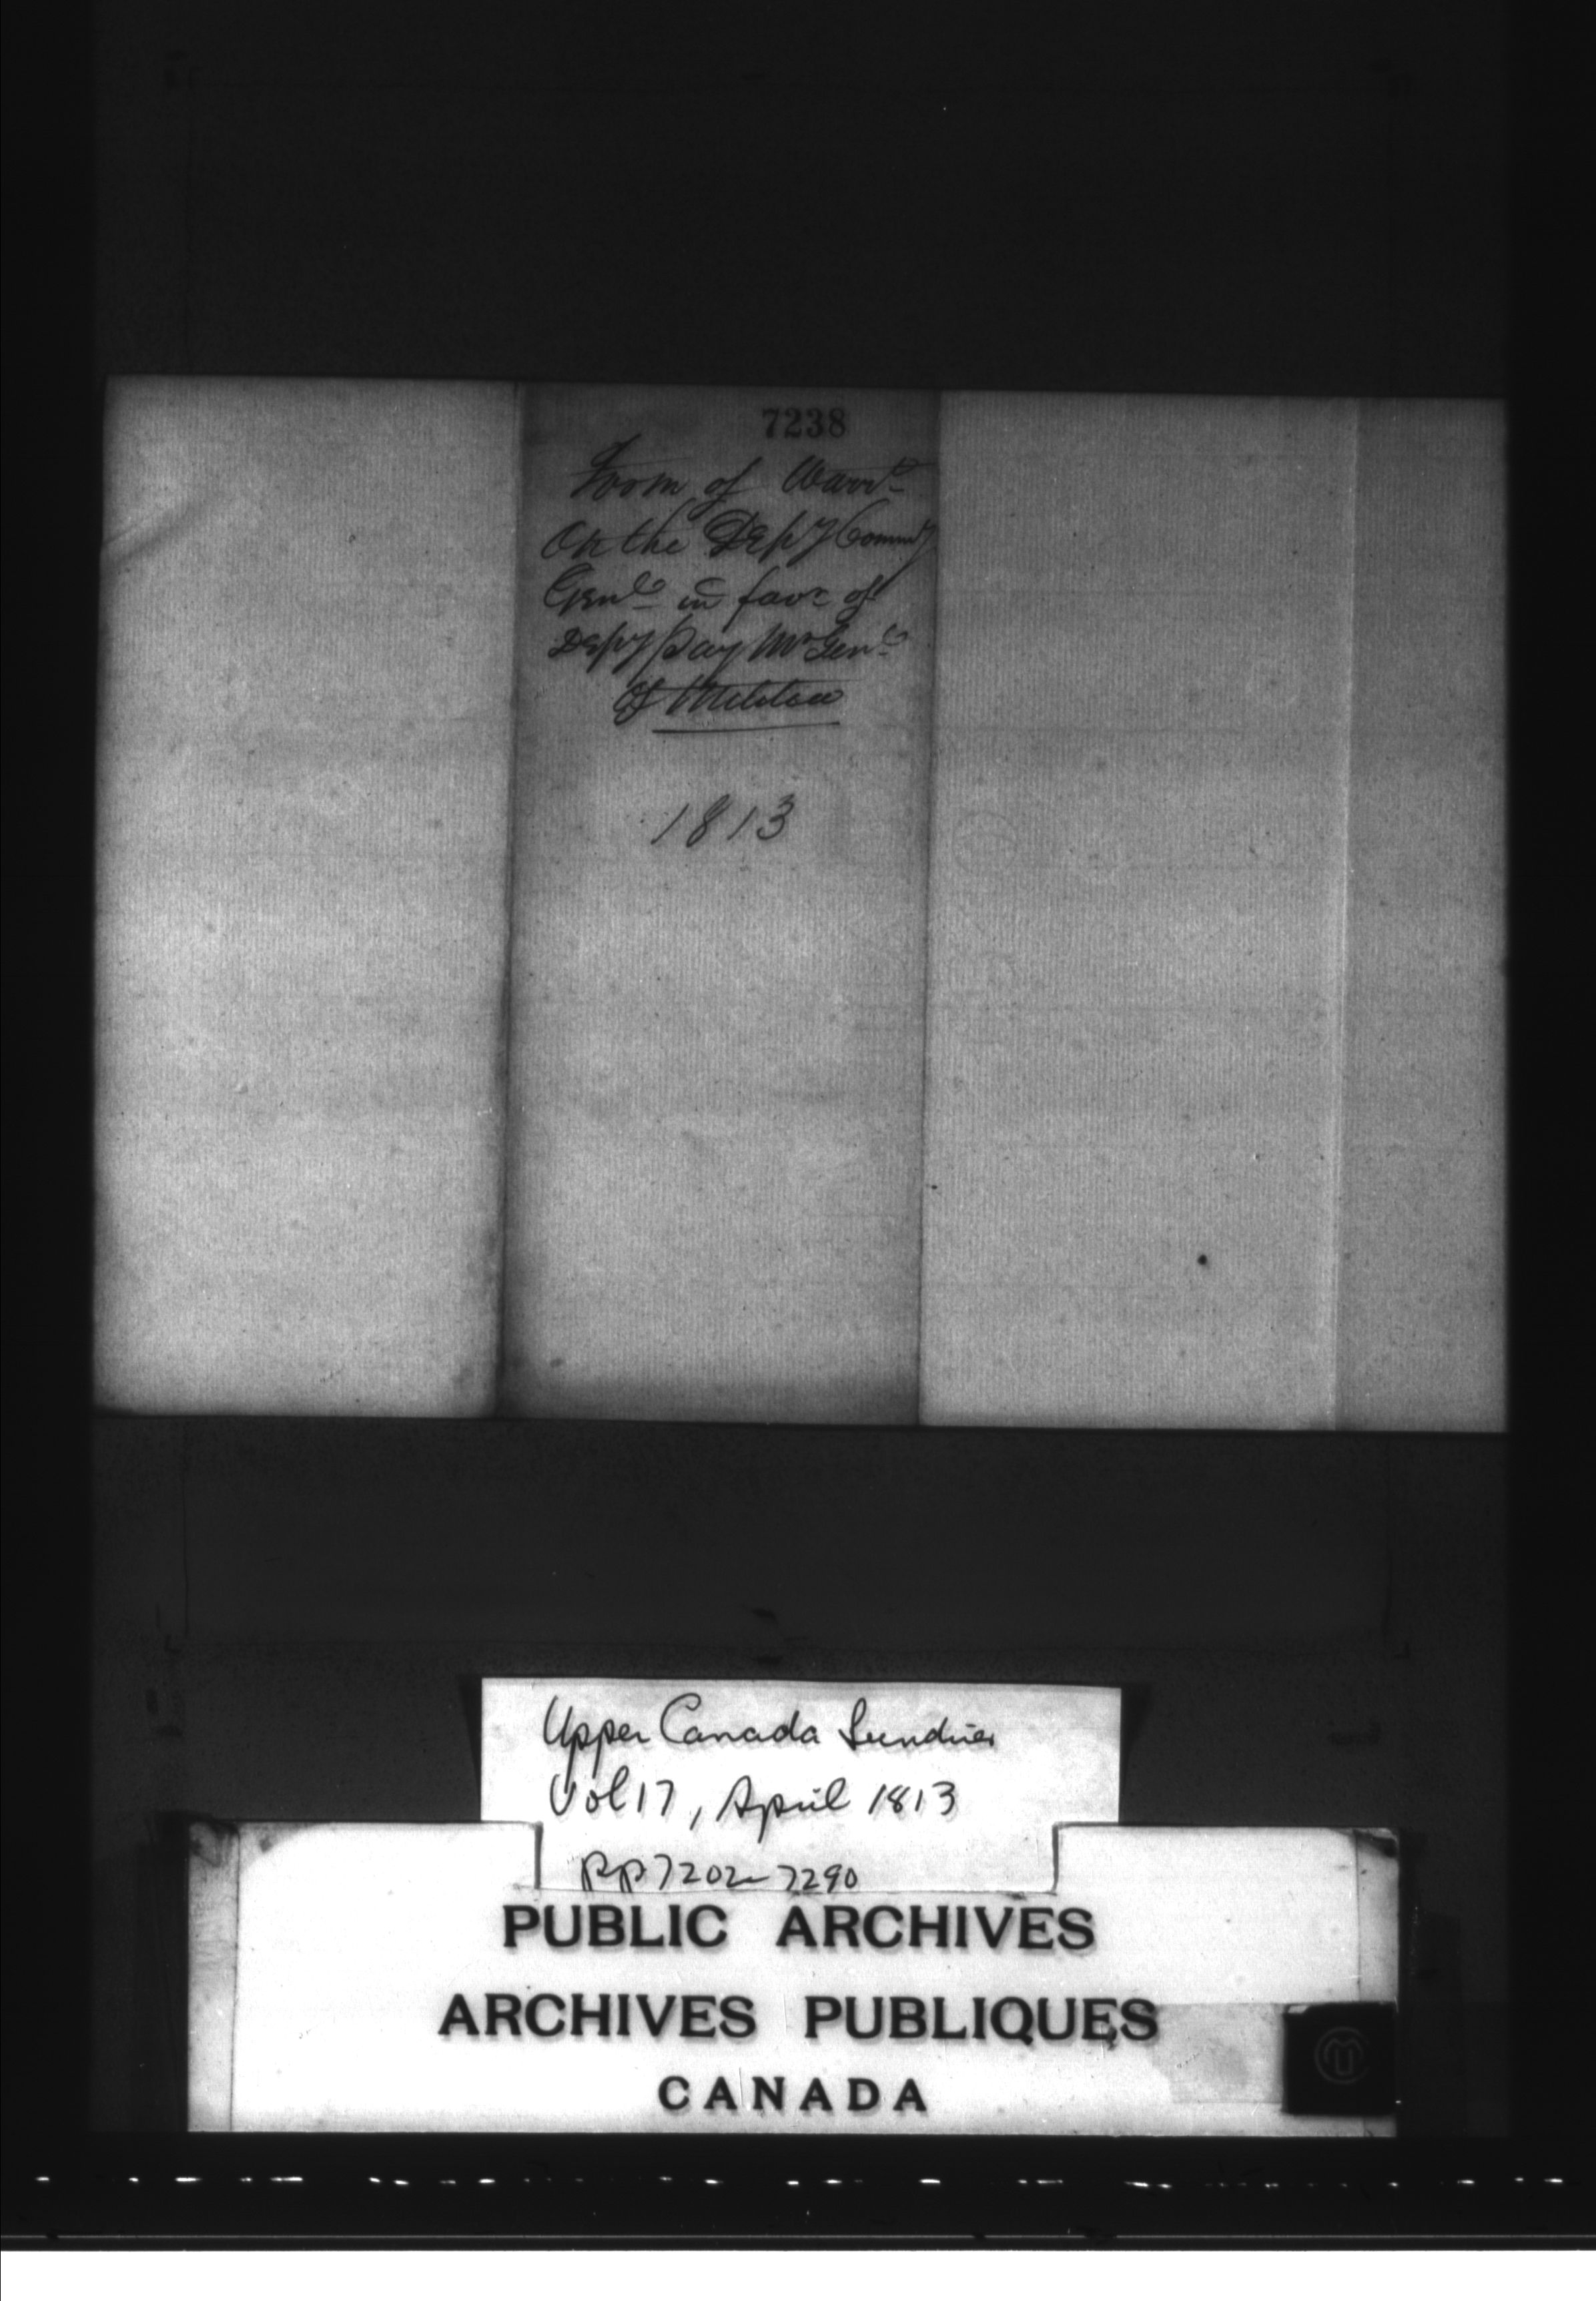 7238
Form of Warrt
On the Depy Commy
Genl in favr of
Depy Pay Mr Genl
Of Militia
1813
Upper Canada Sundries
Vol 17, April 1813
pp 7202-7290
PUBLIC ARCHIVES
ARCHIVES PUBLIQUES
CANADA